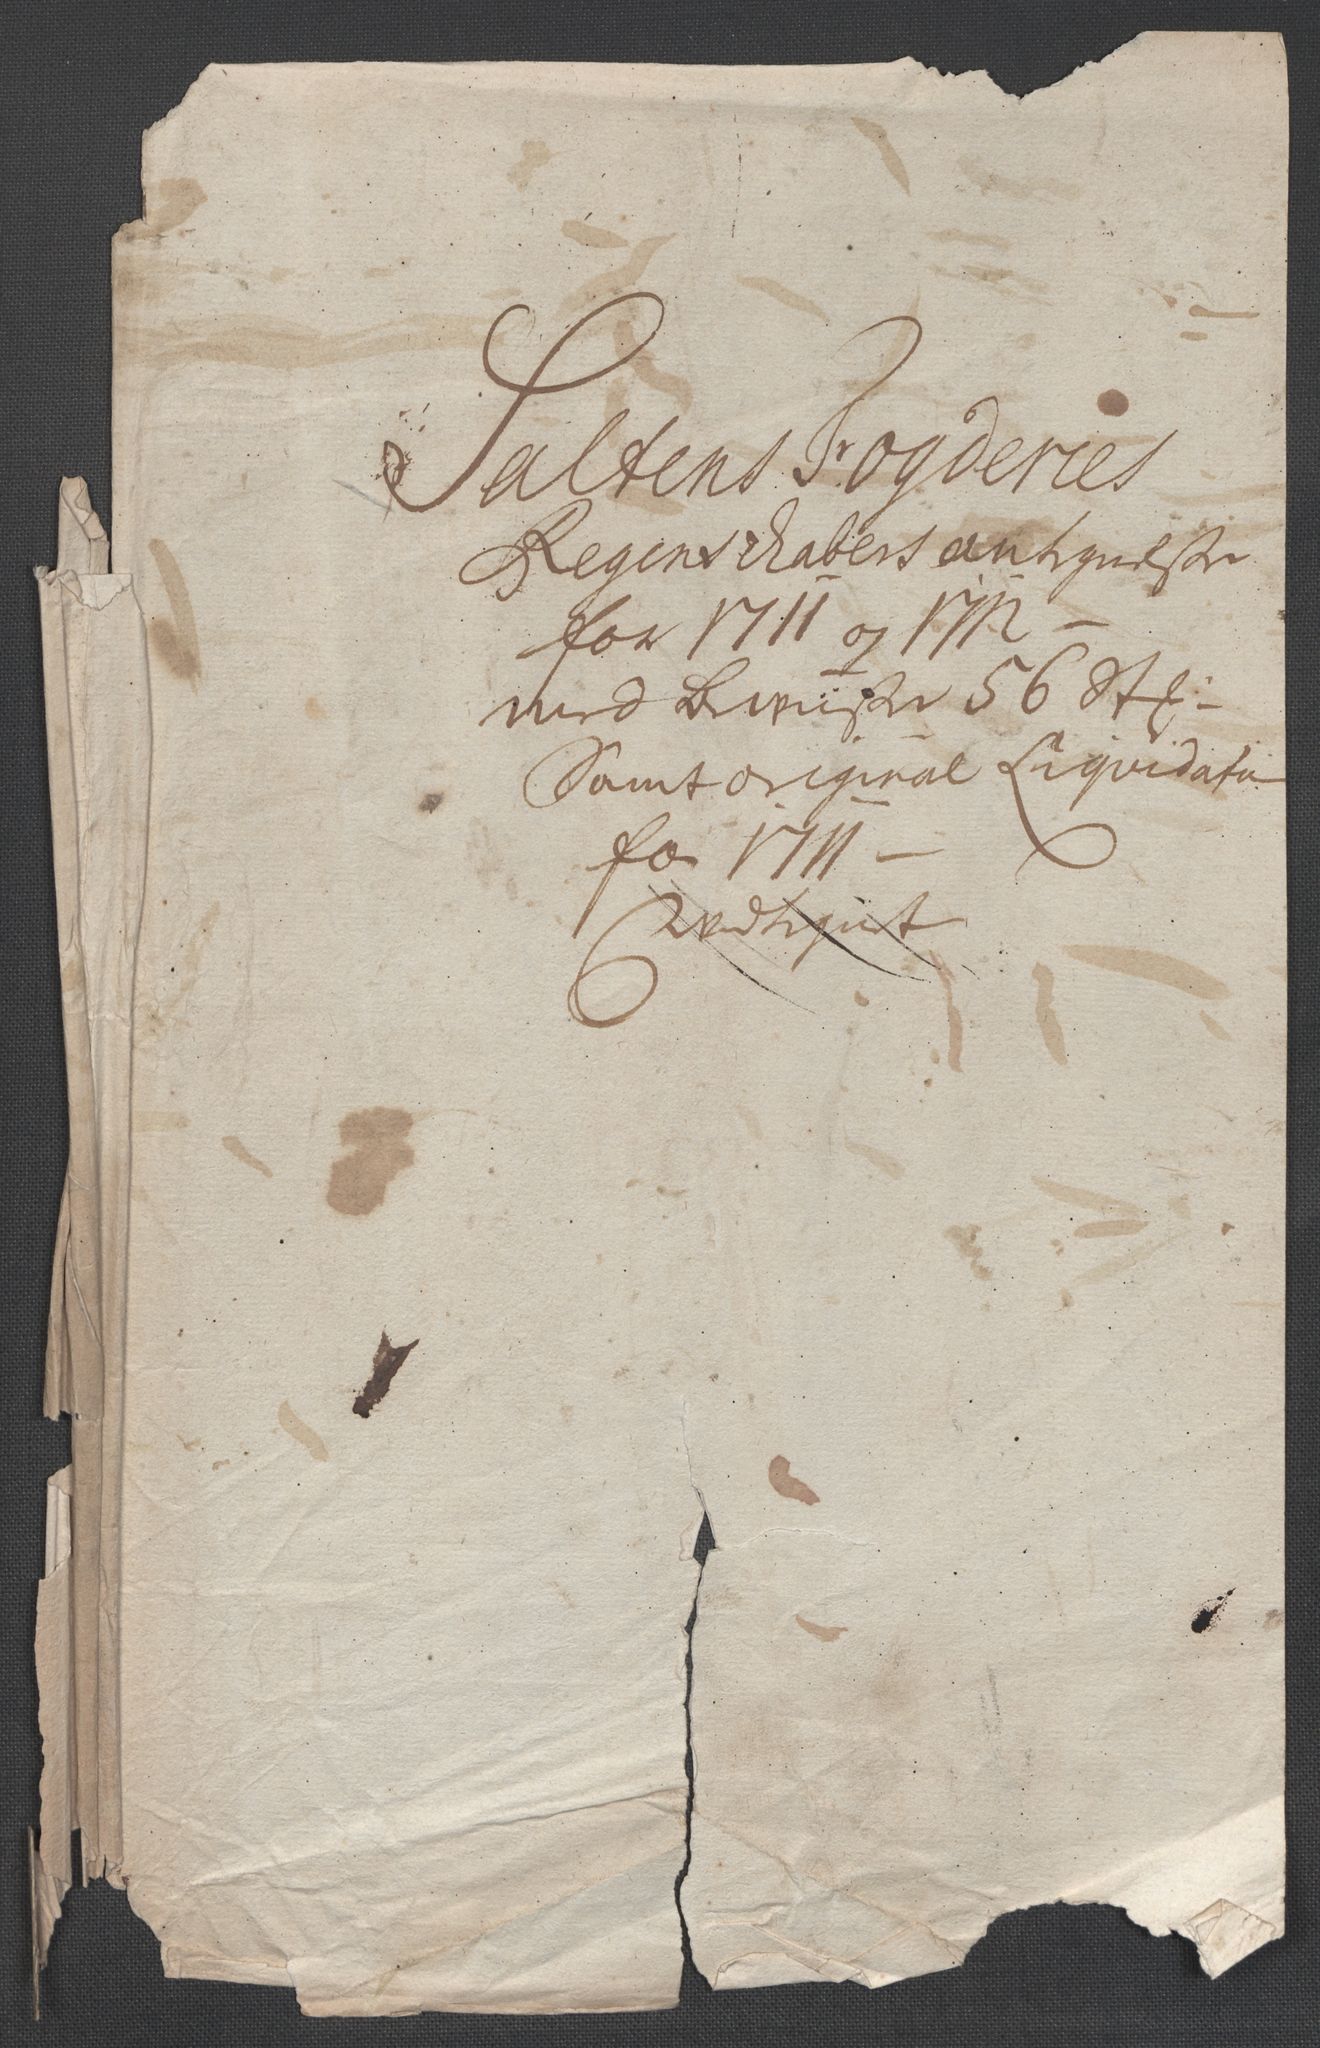 Saltens Fogderies
Regenschabers antegnelser
for 1711 og 1712 –
med beviiser 56 St:
Samt original Liqvidation
for 1711 –